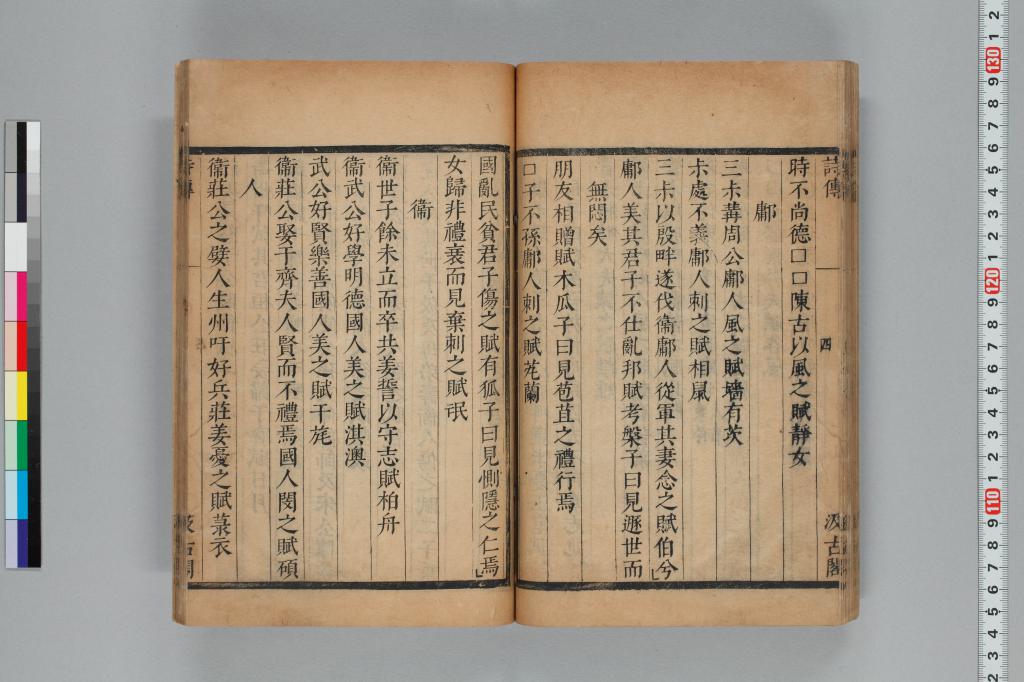 詩傳
四
汲古閣
時不尚德口口陳古以風之賦靜女
鄘
三尗冓周公鄘人風之賦墻有茨
尗處不義鄘人刺之賦相鼠
三尗以殷畔遂伐衞鄘人從軍其妻念之賦伯兮
鄘人美其君子不仕亂邦賦考槃子曰見遯世而
無悶矣
朋友相贈賦木瓜子曰見苞苴之禮行焉
口子不孫鄘人刺之賦芄蘭
國亂民貧君子傷之賦有狐子曰見惻隱之仁焉
女歸非禮衺而見棄刺之賦氓
衞
衞世子餘未立而卒共姜誓以守志賦柏舟
衞武公好學明德國人美之賦淇澳
武公好賢樂善國人美之賦干旄
衞莊公娶于齊夫人賢而不禮焉國人閔之賦碩
人
衞莊公之嬖人生州吁好兵莊姜憂之賦菉衣
詩傳
汲古閣